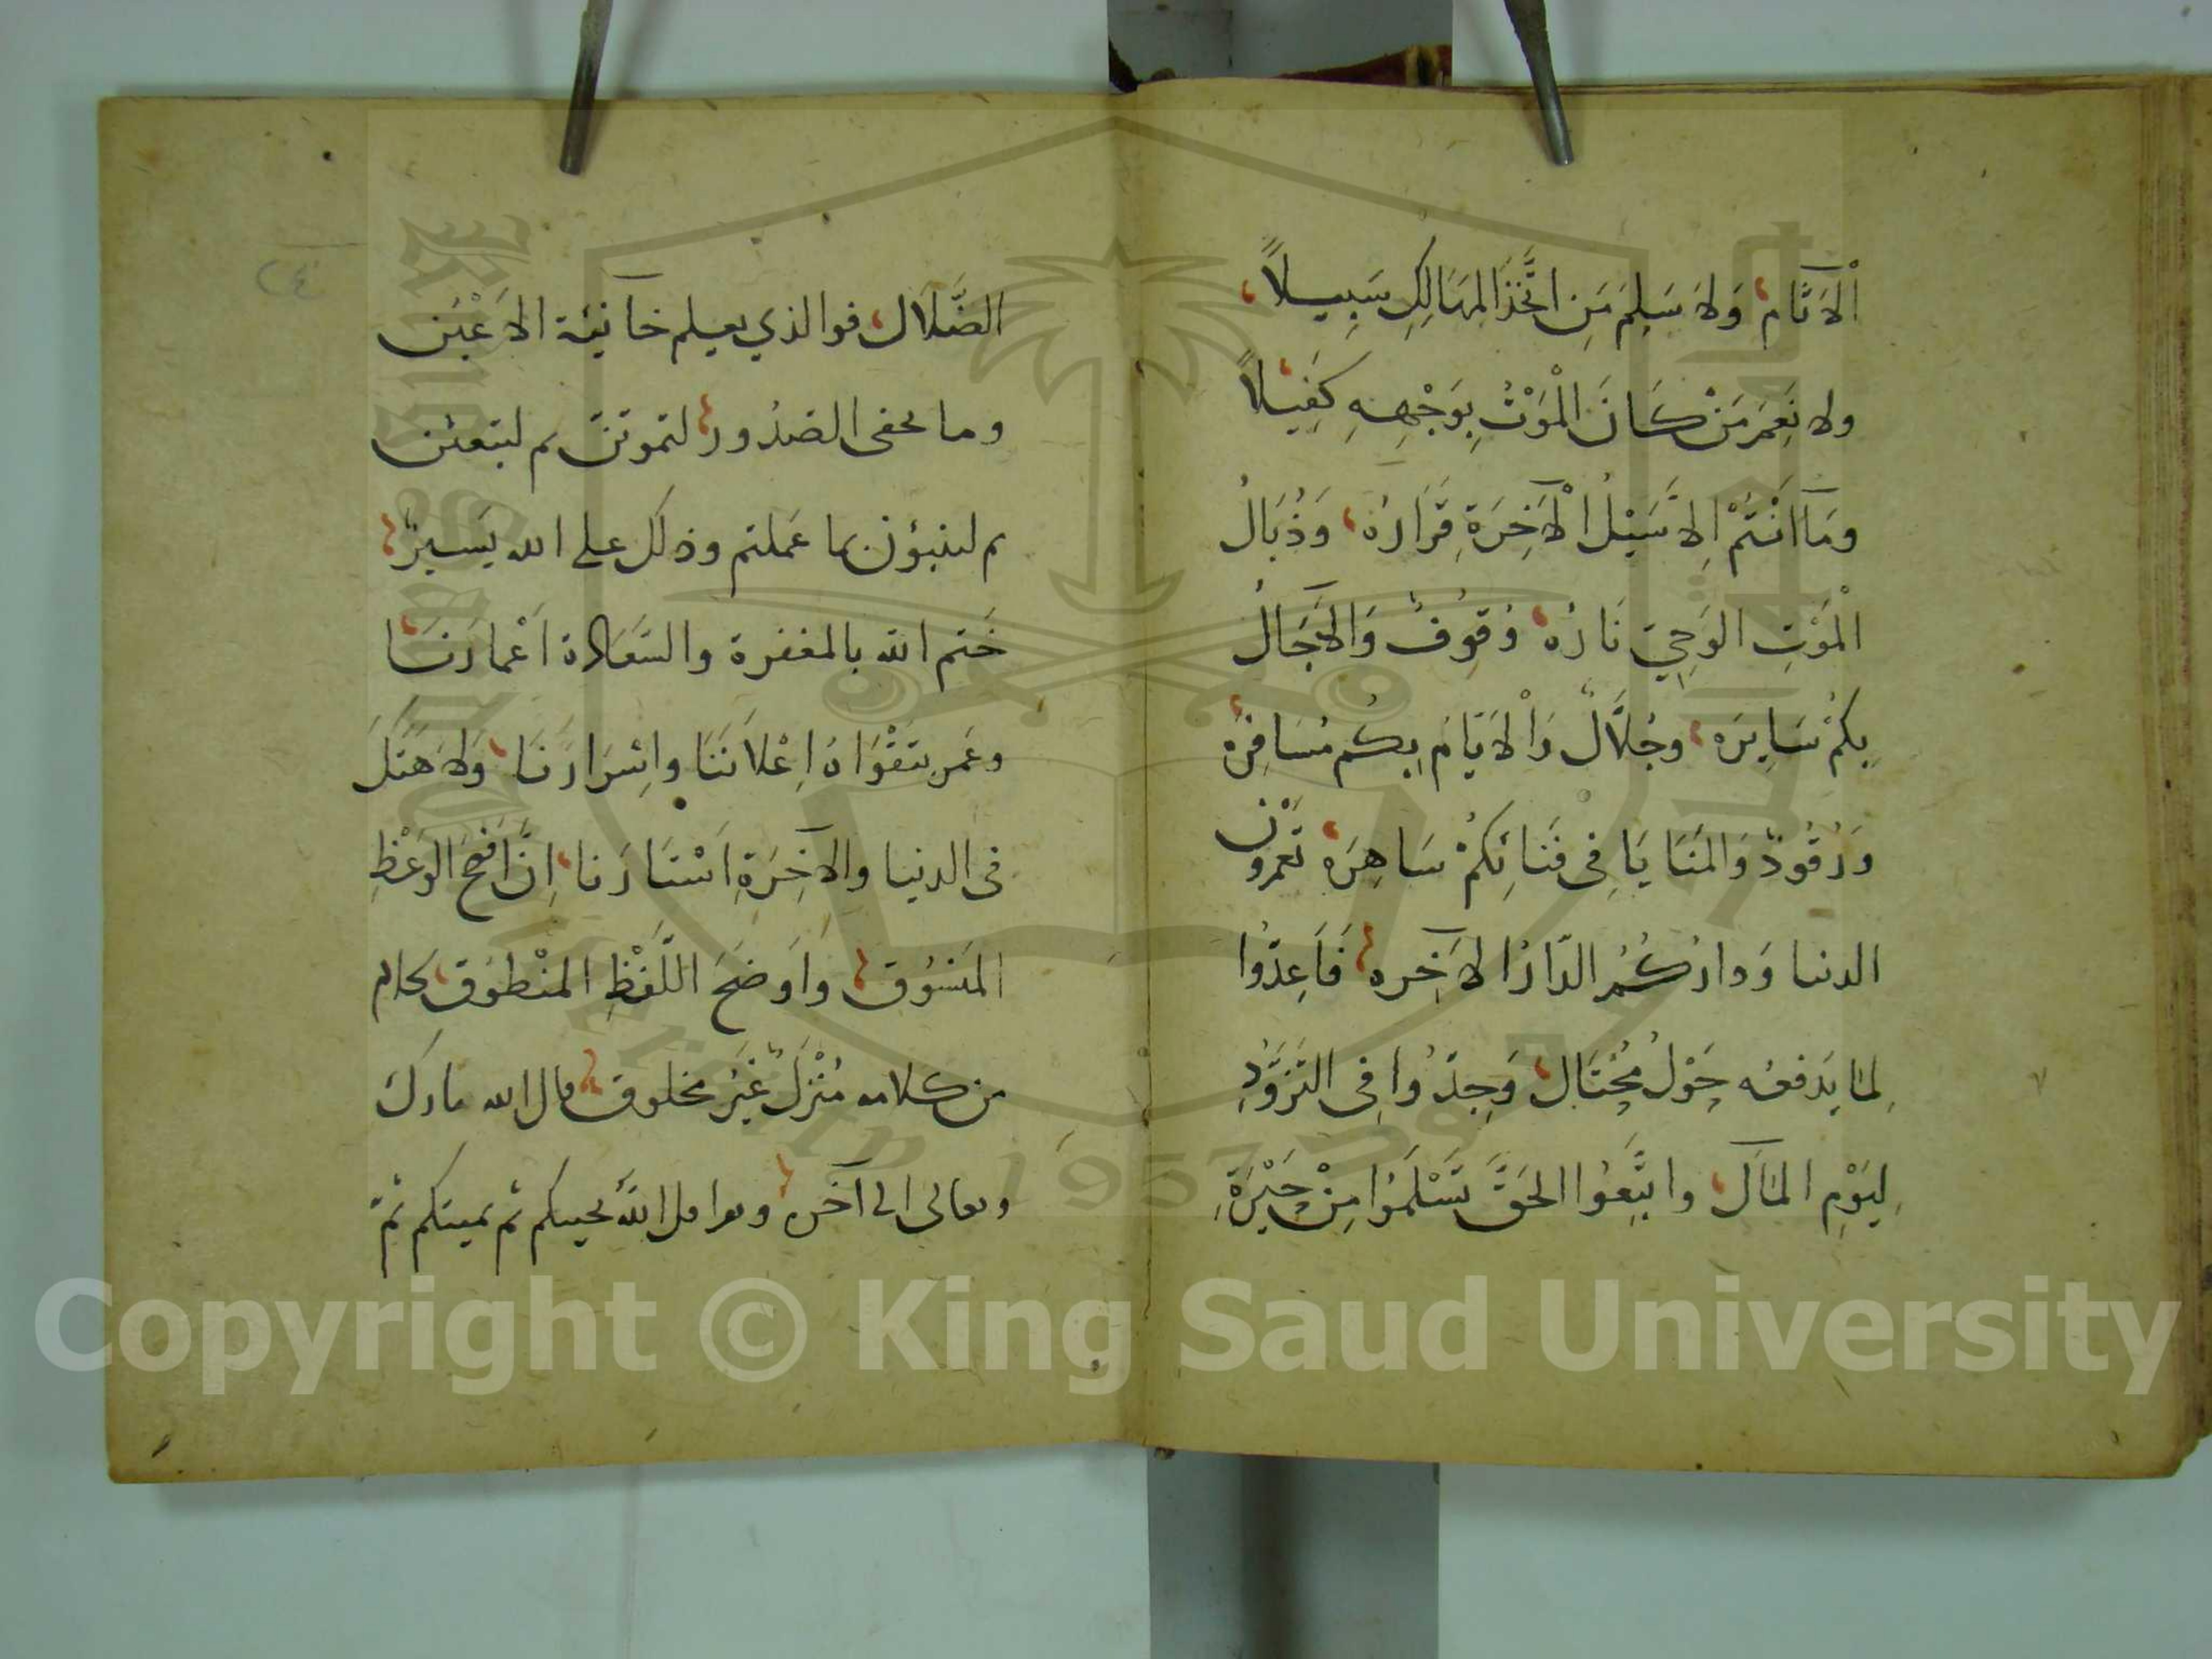 الْآثَامِ وَلَا سَلِمَ مَنِ اتَّخَذَ المَهَالِكَ سَبِيلاً
ولا نَعِمَ مَنْ كَانَ الْمَوْتُ بِوَجْهِهِ كَفِيْلاً
وَمَا اَنْتُمْ اِلَّا سَيْلُ الْآخِرَةِ قَرَارُهُ وَذُبَالُ
الْمَوْتِ الوَحِيِّ نَارُهُ وُقُوفٌ وَالآجَالُ
بِكُمْ سَايِرَه وحُلَّالٌ وَالْاَيَّامُ بِكُم مُسَافِرَه
وَرُقُودٌ وَالمَنَايَا فِى فَنَائِكُمْ سَاهِرَه تعْمرُونَ
الدنيا وَدارُكُمُ الدَّارُ الآخِره فَاَعِدُّوا
لِمَا يَدفعُه حَوْلُ مُحْتَالٍ وَجِدُّوا فِى التَّزَوُّدِ
لِيَوْمِ المَآلِ واتَّبِعُوا الحَقَّ تَسْلَمُوا مِنْ حَيْرَةِ
٢٤
الضَّلَالِ فوالذي يعلم خآئنة الاَعْيُن
وما تخفى الصُدُور لتموتنّ ثم لتبعثن
ثم لتنبؤن بما عَملتم وذلك على الله يَسيرٌ
خَتم الله بالمغفرة والسَّعَادة اَعْمارَنَا
وعَمر بتَقْوَاهُ اِعْلَانَنَا واِسْرَارَنَا وَلَا هَتَكَ
فى الدنيا والآخِرَةِ اَسْتَارَنا اِنَّ اَفْصَحَ الوَعْظِ
المَنسُوق وَاَوضَحَ اللَّفْظِ المنْطوُق كلام
من كلامه مُنْزَلٌ غَيْرُ مخلوق قال الله تبارك
وتعالى الى آخره وتقرا قل اللهُ يحييكم ثم يميتكم ثمّ
Copyright © King Saud University
King Saud University
1957